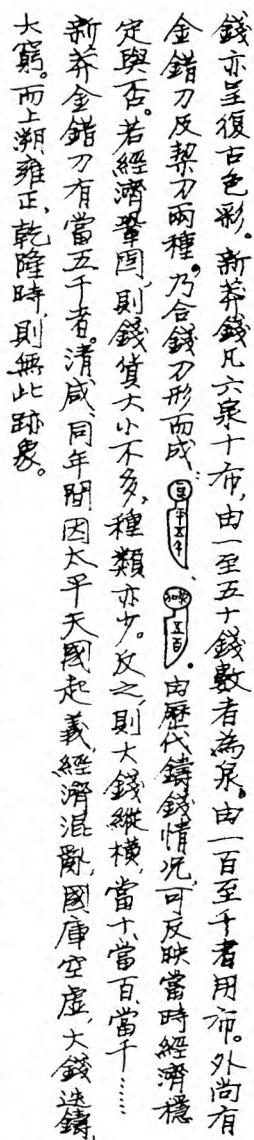 錢亦呈復古色彩。新莽錢凡六泉十布，由一至五十錢數者為泉。由一百至千者用布。外尚有
金錯刀及契刀兩種。乃合錢刀形而成：平五千、契刀五百。由歷代鑄錢情況，可反映當時經濟穩
定與否。若經濟鞏固，則錢貨大小不多，種類亦少。反之，則大錢縱橫，當十、當百、當千……
新莽金錯刀有當五千者。清咸、同年間因太平天國起義，經濟混亂，國庫空虛，大錢迭鑄，
大窮。而上溯雍正、乾隆時，則無此跡象。